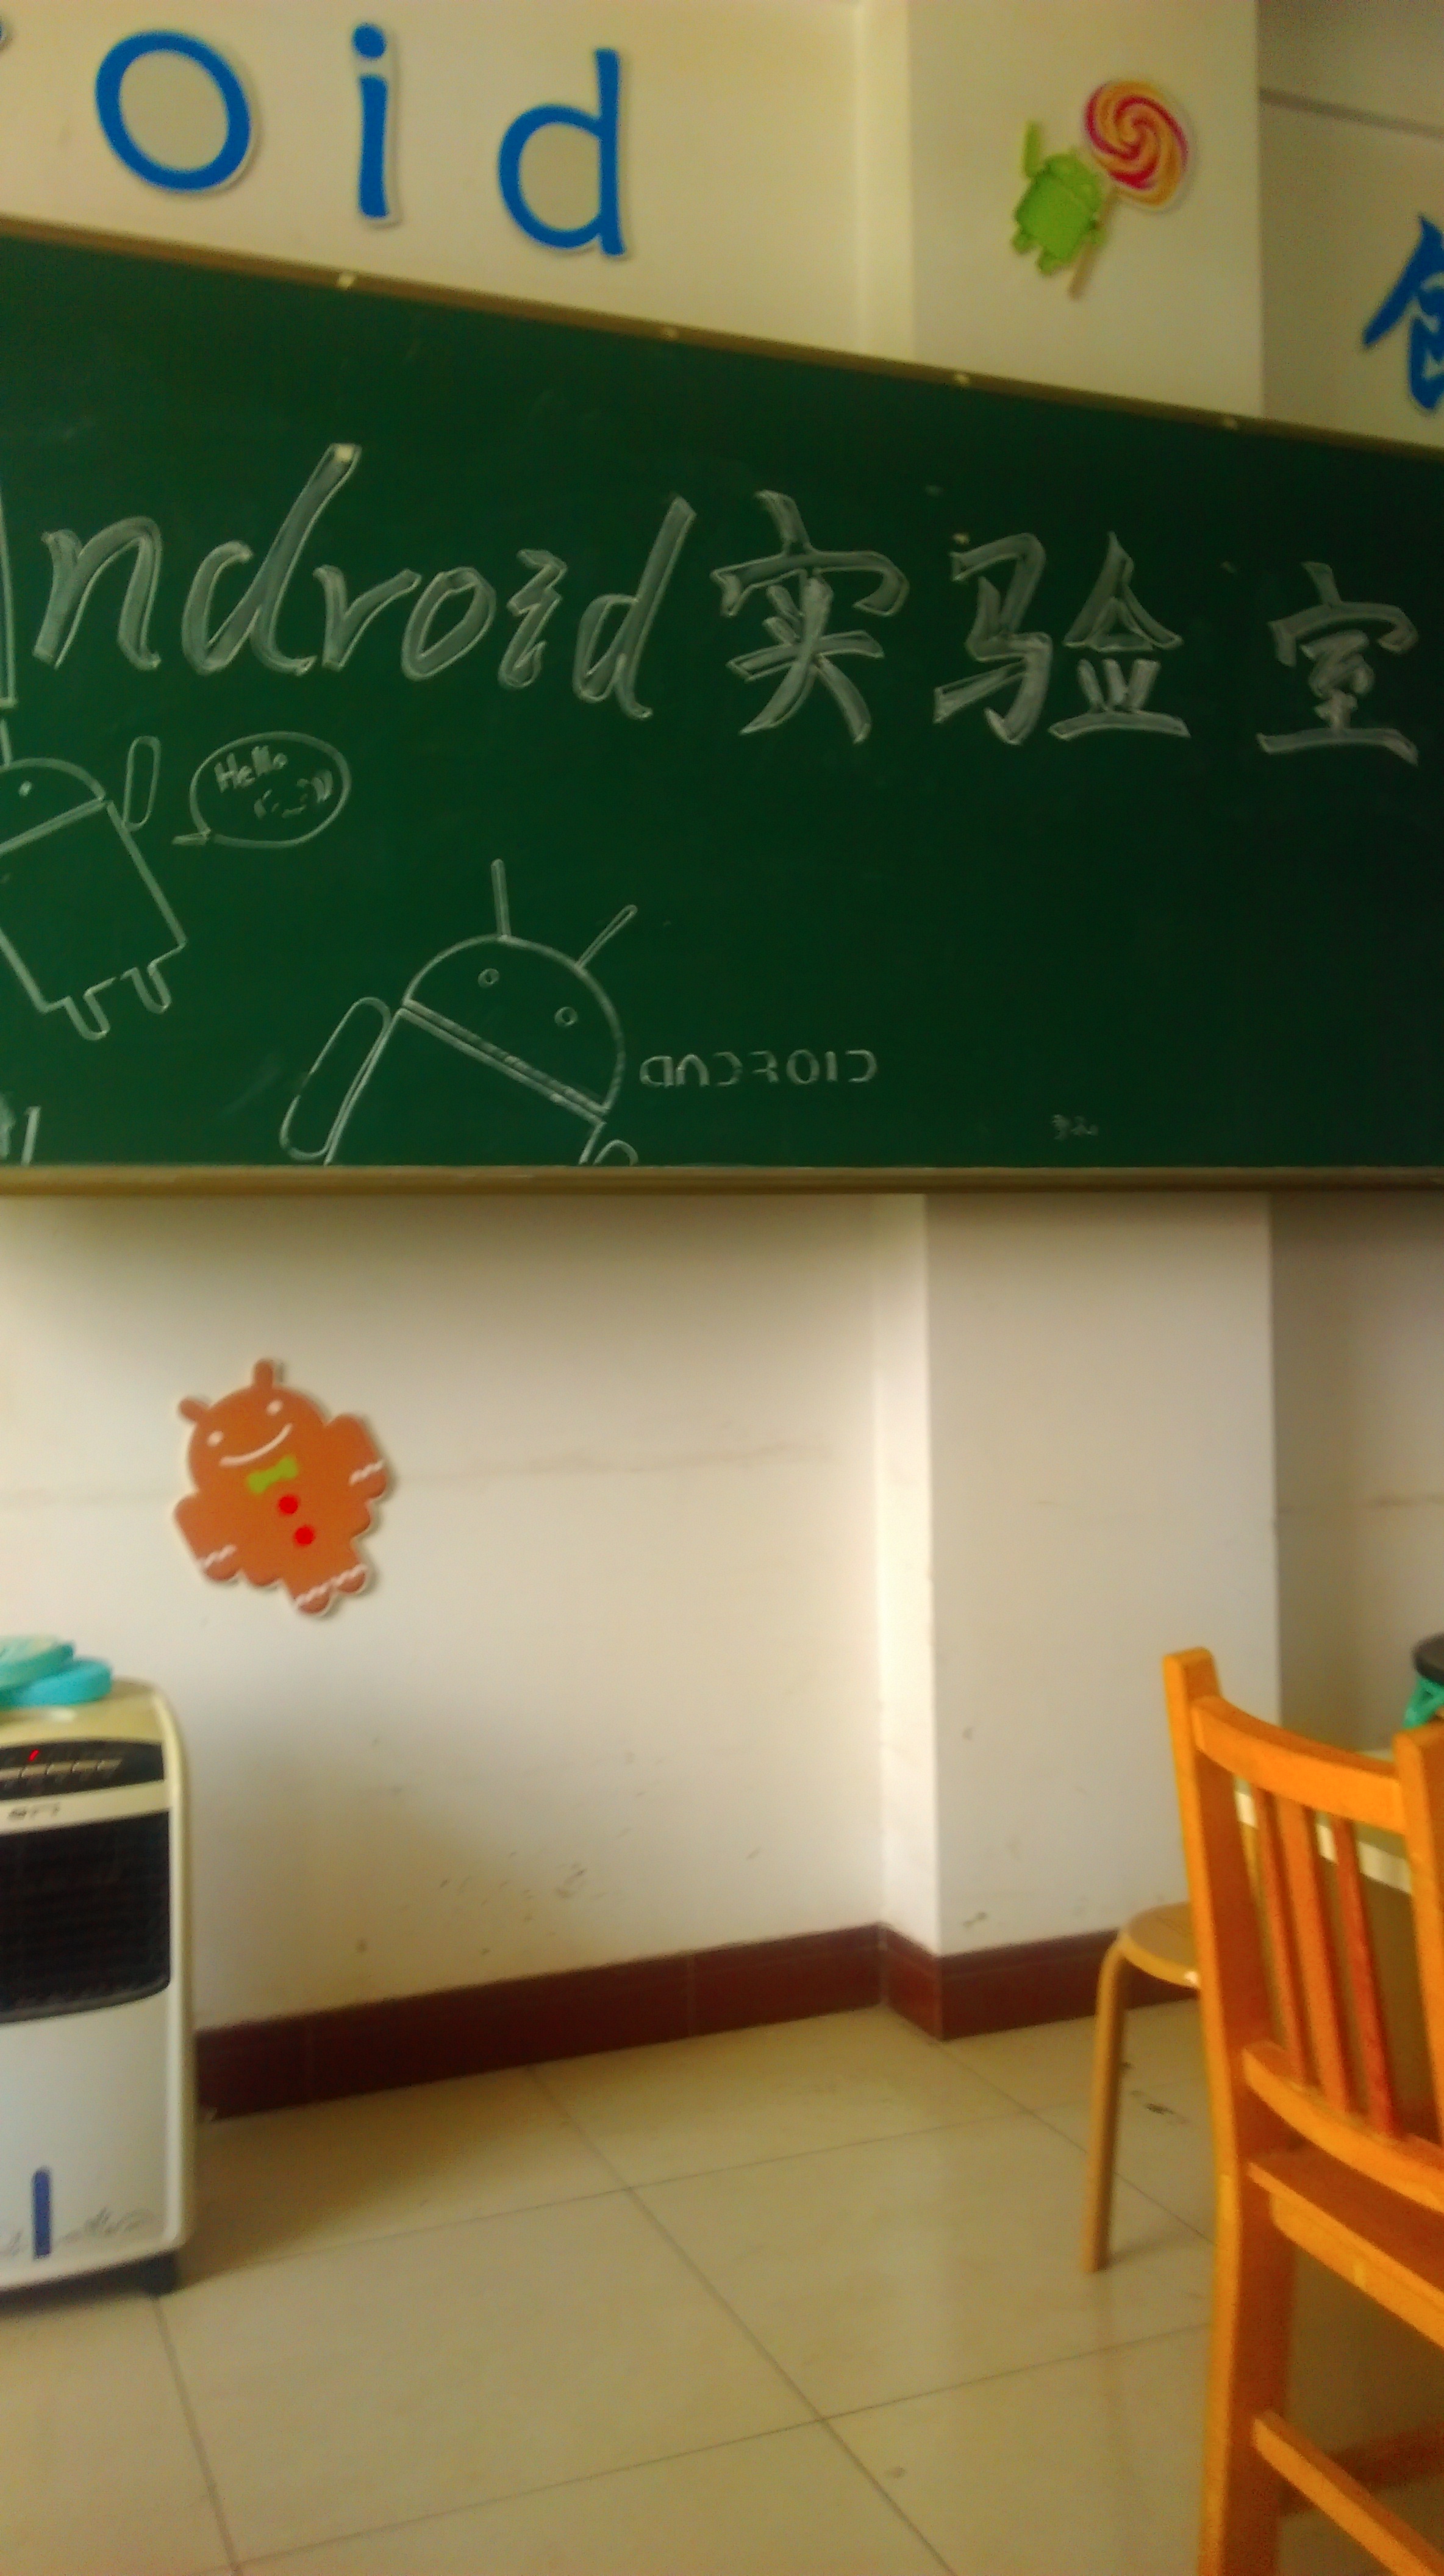 oid
ndroid实验室
Hello
ANDROID